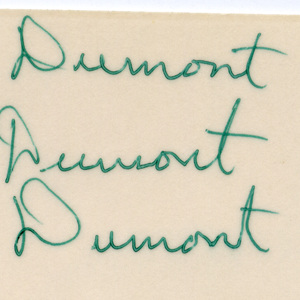 Dumont
Dumont
Dumont